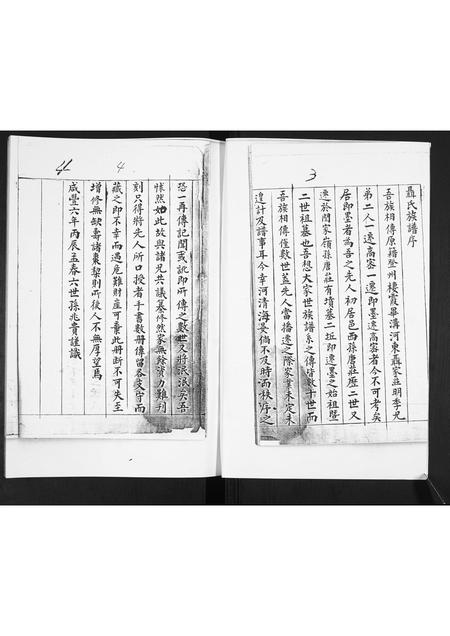 3
聶氏族譜序
吾族相傳原籍登州棲霞畢溝河東聶家亞明季兄
弟二人一遷高密一遷即墨遷高密者今不可考矣
居即墨者為吾之先人初居邑西孫唐莊歷二世又
遷於閻家嶺孫唐莊有墳墓二坵即遷墨之始祖暨
二世祖墓也吾想大家世族譜系之傳皆數十世而
吾族相傳僅數世蓋先人當播遷之際家業未定未
遑計及譜事耳今幸河清海晏倘不及時而秩序之
4
恐一再傳記聞或訛即所傳之數世又將泯泯矣吾
悵然如此故與諸兄共議纂修然家無餘力難刊
刻只得將先人所口授者手書數冊傳留各支守而
藏之即不幸而遇危難財產可棄此冊斷不可失至
增修無缺壽諸棗梨則所後人不無厚望焉
咸豐六年丙辰孟春六世孫兆貴謹識